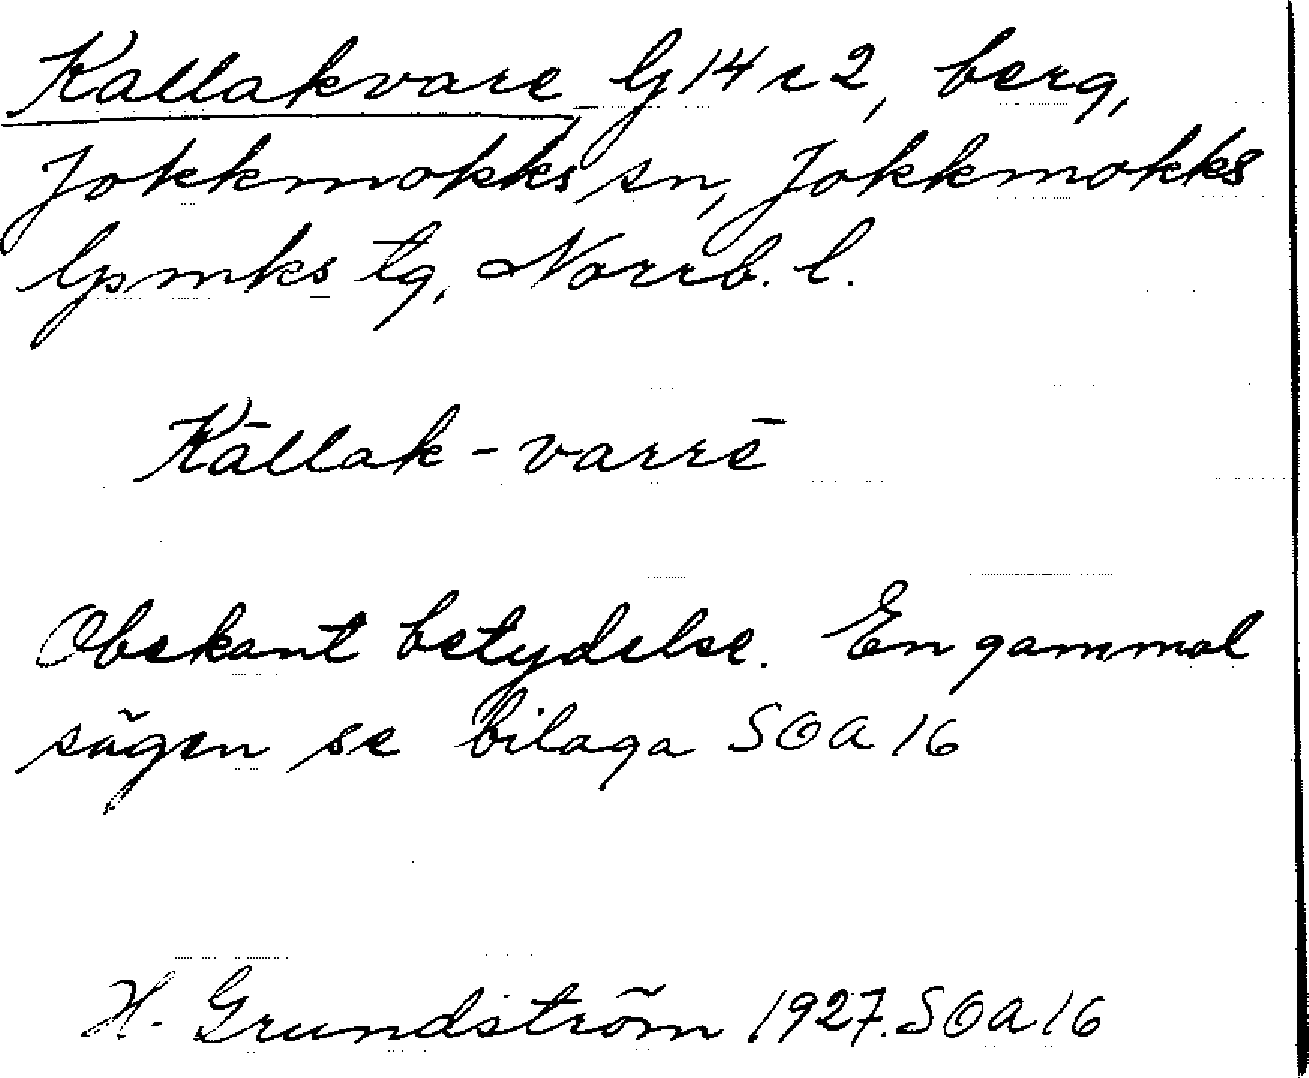 Kallakvare G14 r 2, berg,
Jokkmokks sn, Jokkmokks
lpmks tg, Norrb. l.
Kāllak-varrē
Obekant betydelse. En gammal
sägen se bilaga SOA 16
H. Grundström 1927. SOA 16